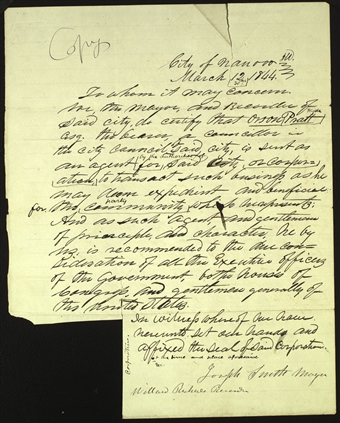 Copy
City of Nauvoo Ill.
March 12 1844
To whom it may concern
We, the Mayor, and Recorder of
said city, do certify that Orson Pratt
Esq. the bearer, a councillor in
the city Council, said city, is sent as
by the authorities of
an agent for, said City, or Corpor
ation, to transact such business as he
may deem expedient and beneficial
party
for the community whose
And as such agent, and gentleman
of principle and character, he by
us, is recommended to the due con-
sideration of all the Executive officers
of the Government both houses of
Congress, and gentlemen generally of
the United States.
In witness whereof we have
hereunto set our hands and
affixed the seal of said Corporation
at the time and place
Joseph Smith Mayor
Willard Richards Recorder
Corporation